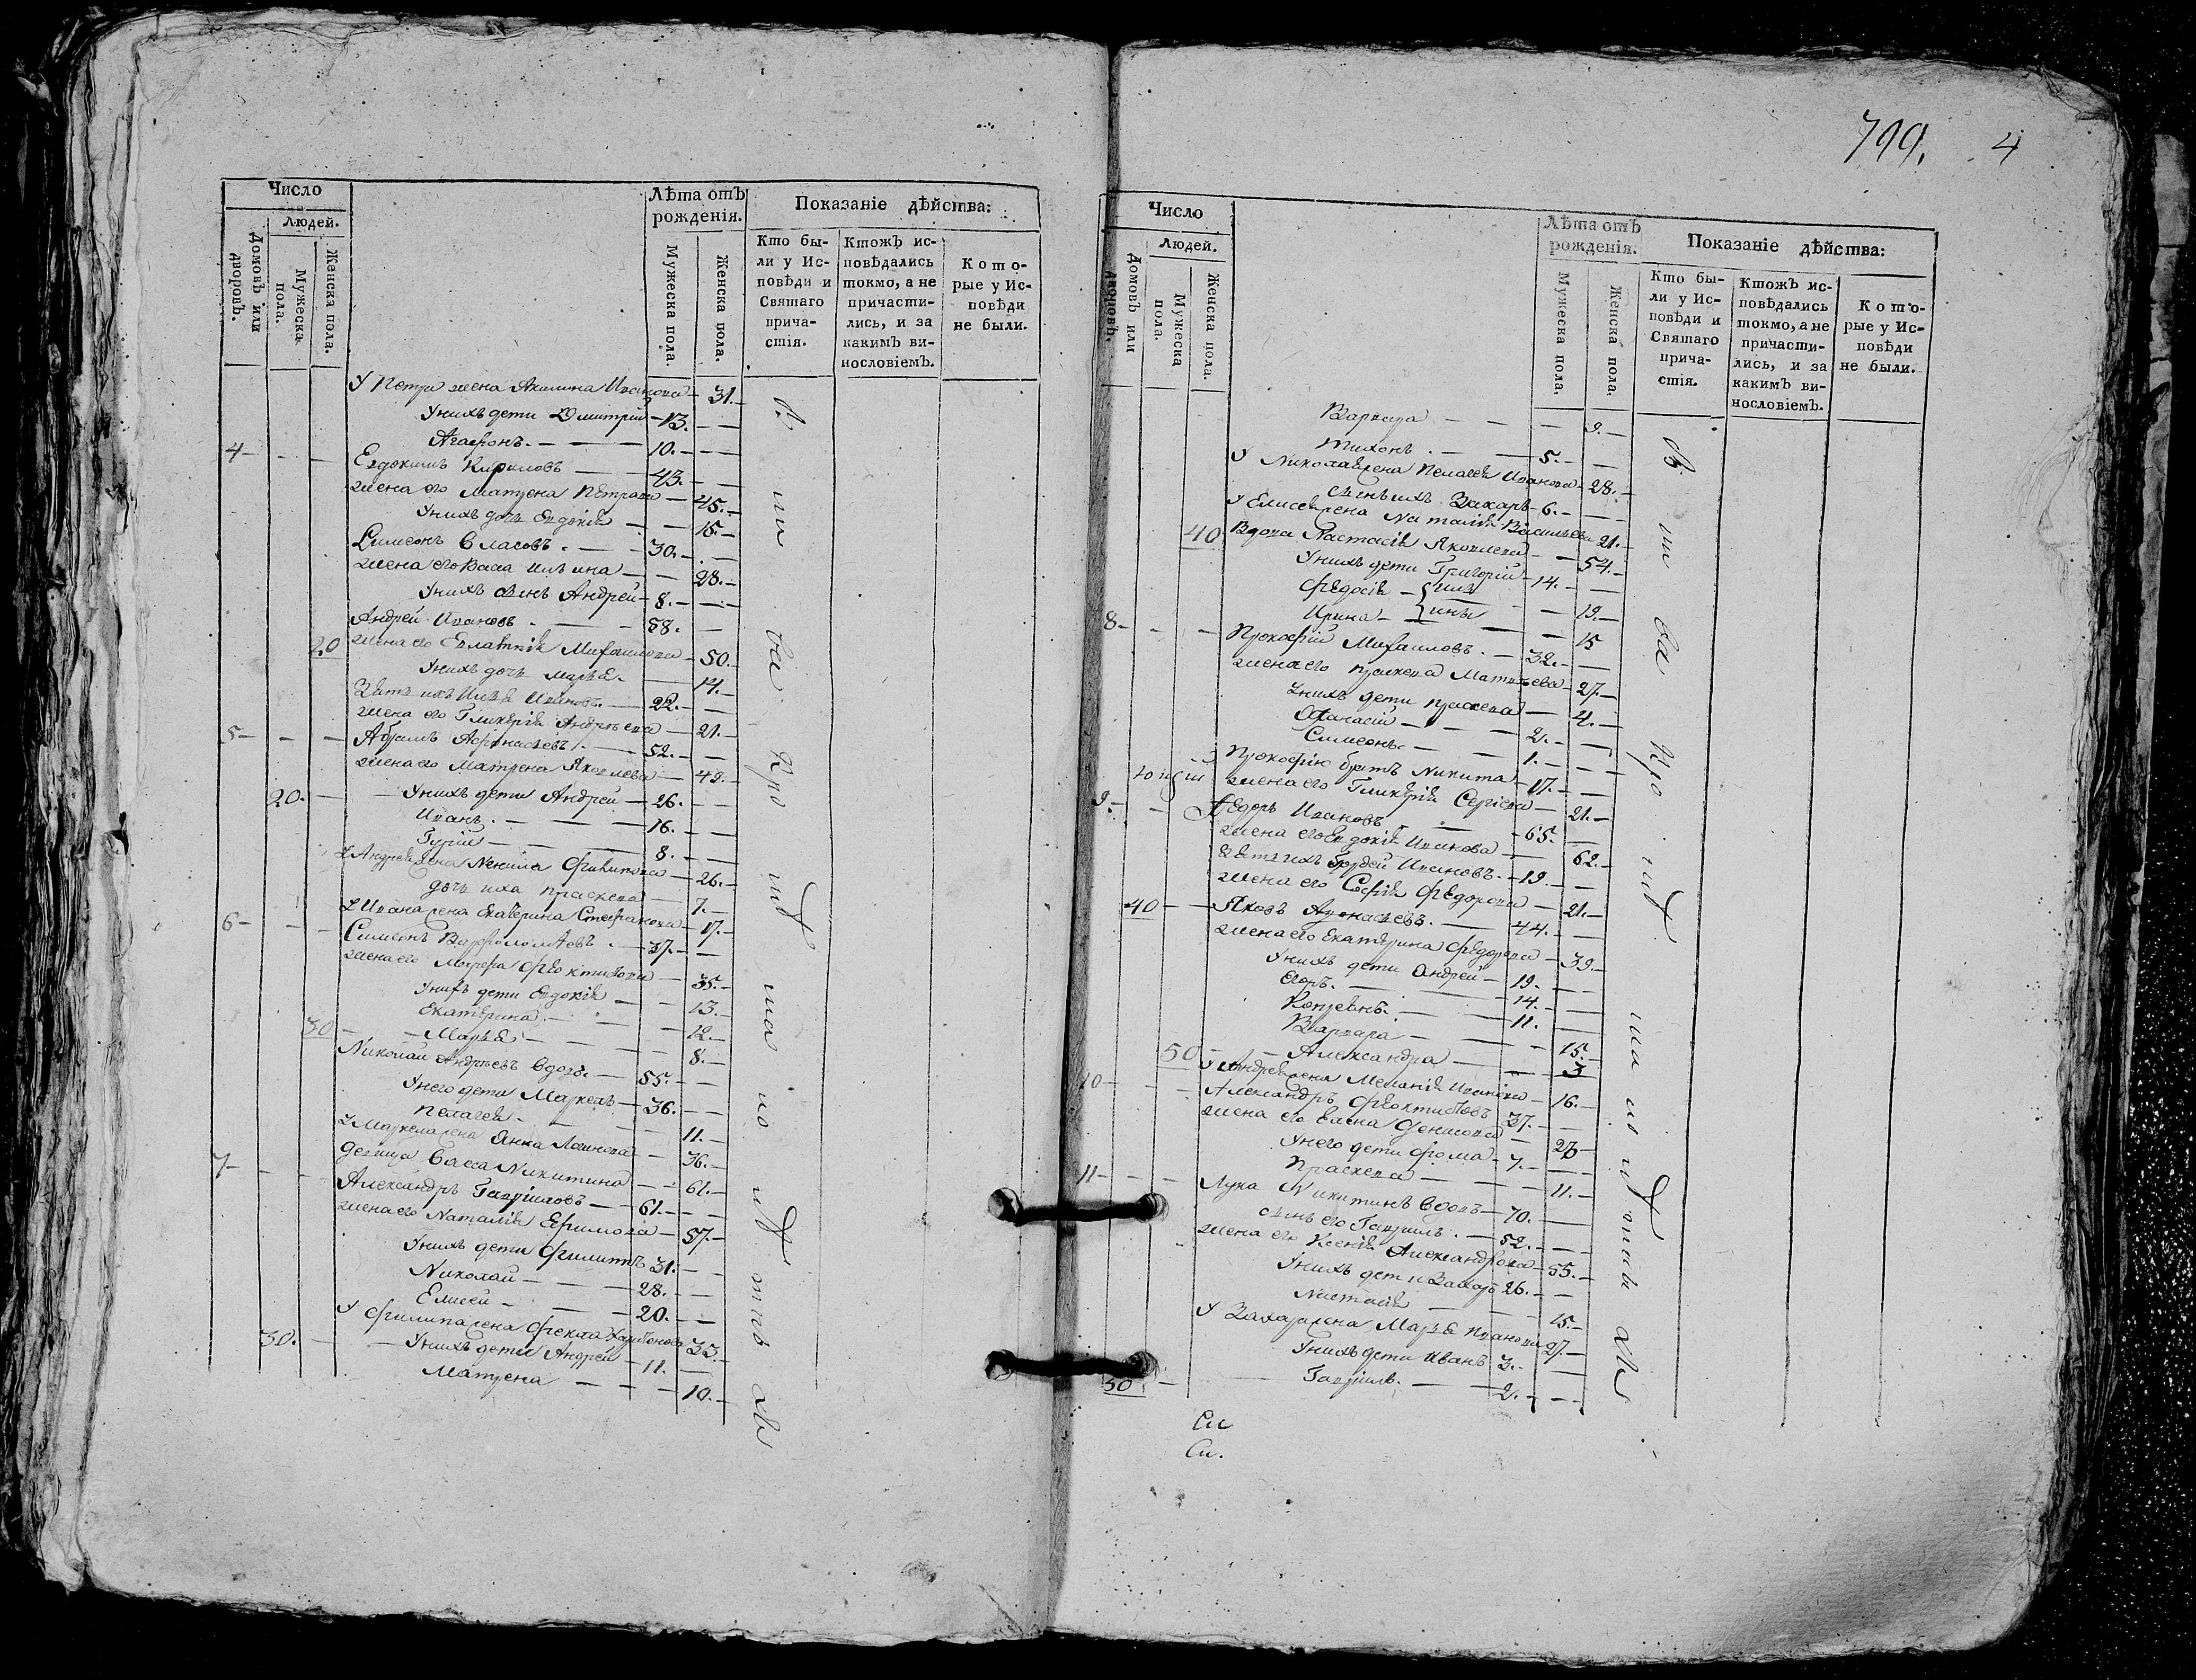 Число
Людей.
Домовъ или дворовъ.
Мужеска пола.
Женска пола.
Лѣта отъ рожденія.
Мужеска пола.
Женска пола.
Показаніе дѣйства:
Кто бы-
ли у Ис-
повѣди и
Святаго
прича-
стія.
Ктожъ ис-
повѣдались
токмо, а не
причасти-
лись, и за
какимъ ви-
нословіемъ.
Кото-
рые у Ис-
повѣди
не были.
У Петра жена Акилина Иванова 31.
У нихъ дети Димитрій 13.
Агафонъ. 10.
4 Евдокимъ Кириловъ 43.
жена его Матрена Петрова 45.
У нихъ дочь Евдокія 15.
Симеонъ Власовъ. 30.
жена его Васа Ильина 28.
У нихъ сынъ Андрей 8.
Андрей Ивановъ. 58.
20 жена его Евлампія Михаилова 50.
У нихъ дочь Марья. 14.
Зять ихъ Илья Ивановъ. 22.
жена его Гликерія Андреева 21.
5 Абрамъ Афонасьевъ. 52.
жена его Матрена Яковлева 49.
20. У нихъ дети Андрей 26.
Иванъ. 16.
Гурій 8.
У Андрея жена Ненила Филипова 26.
дочь ихъ Прасковья 7.
У Ивана жена Екатерина Стефанова 17.
6 Симеонъ Варфоломеевъ. 37.
жена его Марфа Феоктистова 35.
У нихъ дети Евдокія 13.
Екатерина. 12.
30 Марья 8.
Николай Андреевъ вдовъ. 55.
У него дети Маркелъ 36.
Пелагея 11.
У Маркела жена Анна Логинова 36.
девица Васса Никитина 61.
7 Александръ Гавриловъ 61.
жена его Наталія Ефимова 57.
У нихъ дети Филиппъ 31.
Николай 28.
Елисей 20.
У Филипа жена Фекла Харитонова 33.
30. У нихъ дети Андрей 11.
Матрена 10.
799. 4
Число
Людей.
Домовъ или дворовъ.
Мужеска пола.
Женска пола.
Лѣта отъ рожденія.
Мужеска пола.
Женска пола.
Показаніе дѣйства:
Кто бы-
ли у Ис-
повѣди и
Святаго
прича-
стія.
Ктожъ ис-
повѣдались
токмо, а не
причасти-
лись, и за
какимъ ви-
нословіемъ.
Кото-
рые у Ис-
повѣди
не были.
Варвара 9.
Тихонъ. 5.
У Николая жена Пелагея Иванова 28.
сынъ ихъ Захаръ 6.
У Елисея жена Наталія Васильева 21.
40 Вдова Настасія Яковлева 54.
У нихъ дети Григорій 14.
Федосія 19.
Ирина 15
8 Прокофій Михаиловъ. 32.
жена его Прасковья Матвѣева 27.
У нихъ дети Прасковья 4.
Афанасій 2.
Симеонъ. 1.
У Прокофію братъ Никита 17.
жена его Гликерія Сергіева 21.
9 Федоръ Ивановъ 65.
жена его Евдокія Иванова 62.
Зять ихъ Ивановъ. 19.
жена его Софія Федорова 21.
40 Яковъ Афонасьевъ. 44.
жена его Екатерина Федорова 39.
У нихъ дети Андрей 19.
Егоръ. 14.
11.
Варвара 15.
50 Александра 3
У Андрея жена Меланія Иванова 16.
10 Александръ Феоктистовъ 37.
жена его Елена Денисова
У него дети Фома 7.
Прасковья 11.
11 Лука Никитинъ вдовъ 70.
сынъ его Гавріилъ. 52.
жена его Ксенія Александрова 55.
У нихъ дети Захаръ 26.
Настасія 15.
У Захара жена Марья Иванова 27.
У нихъ дети Иванъ 3.
50 Гавріилъ. 2.